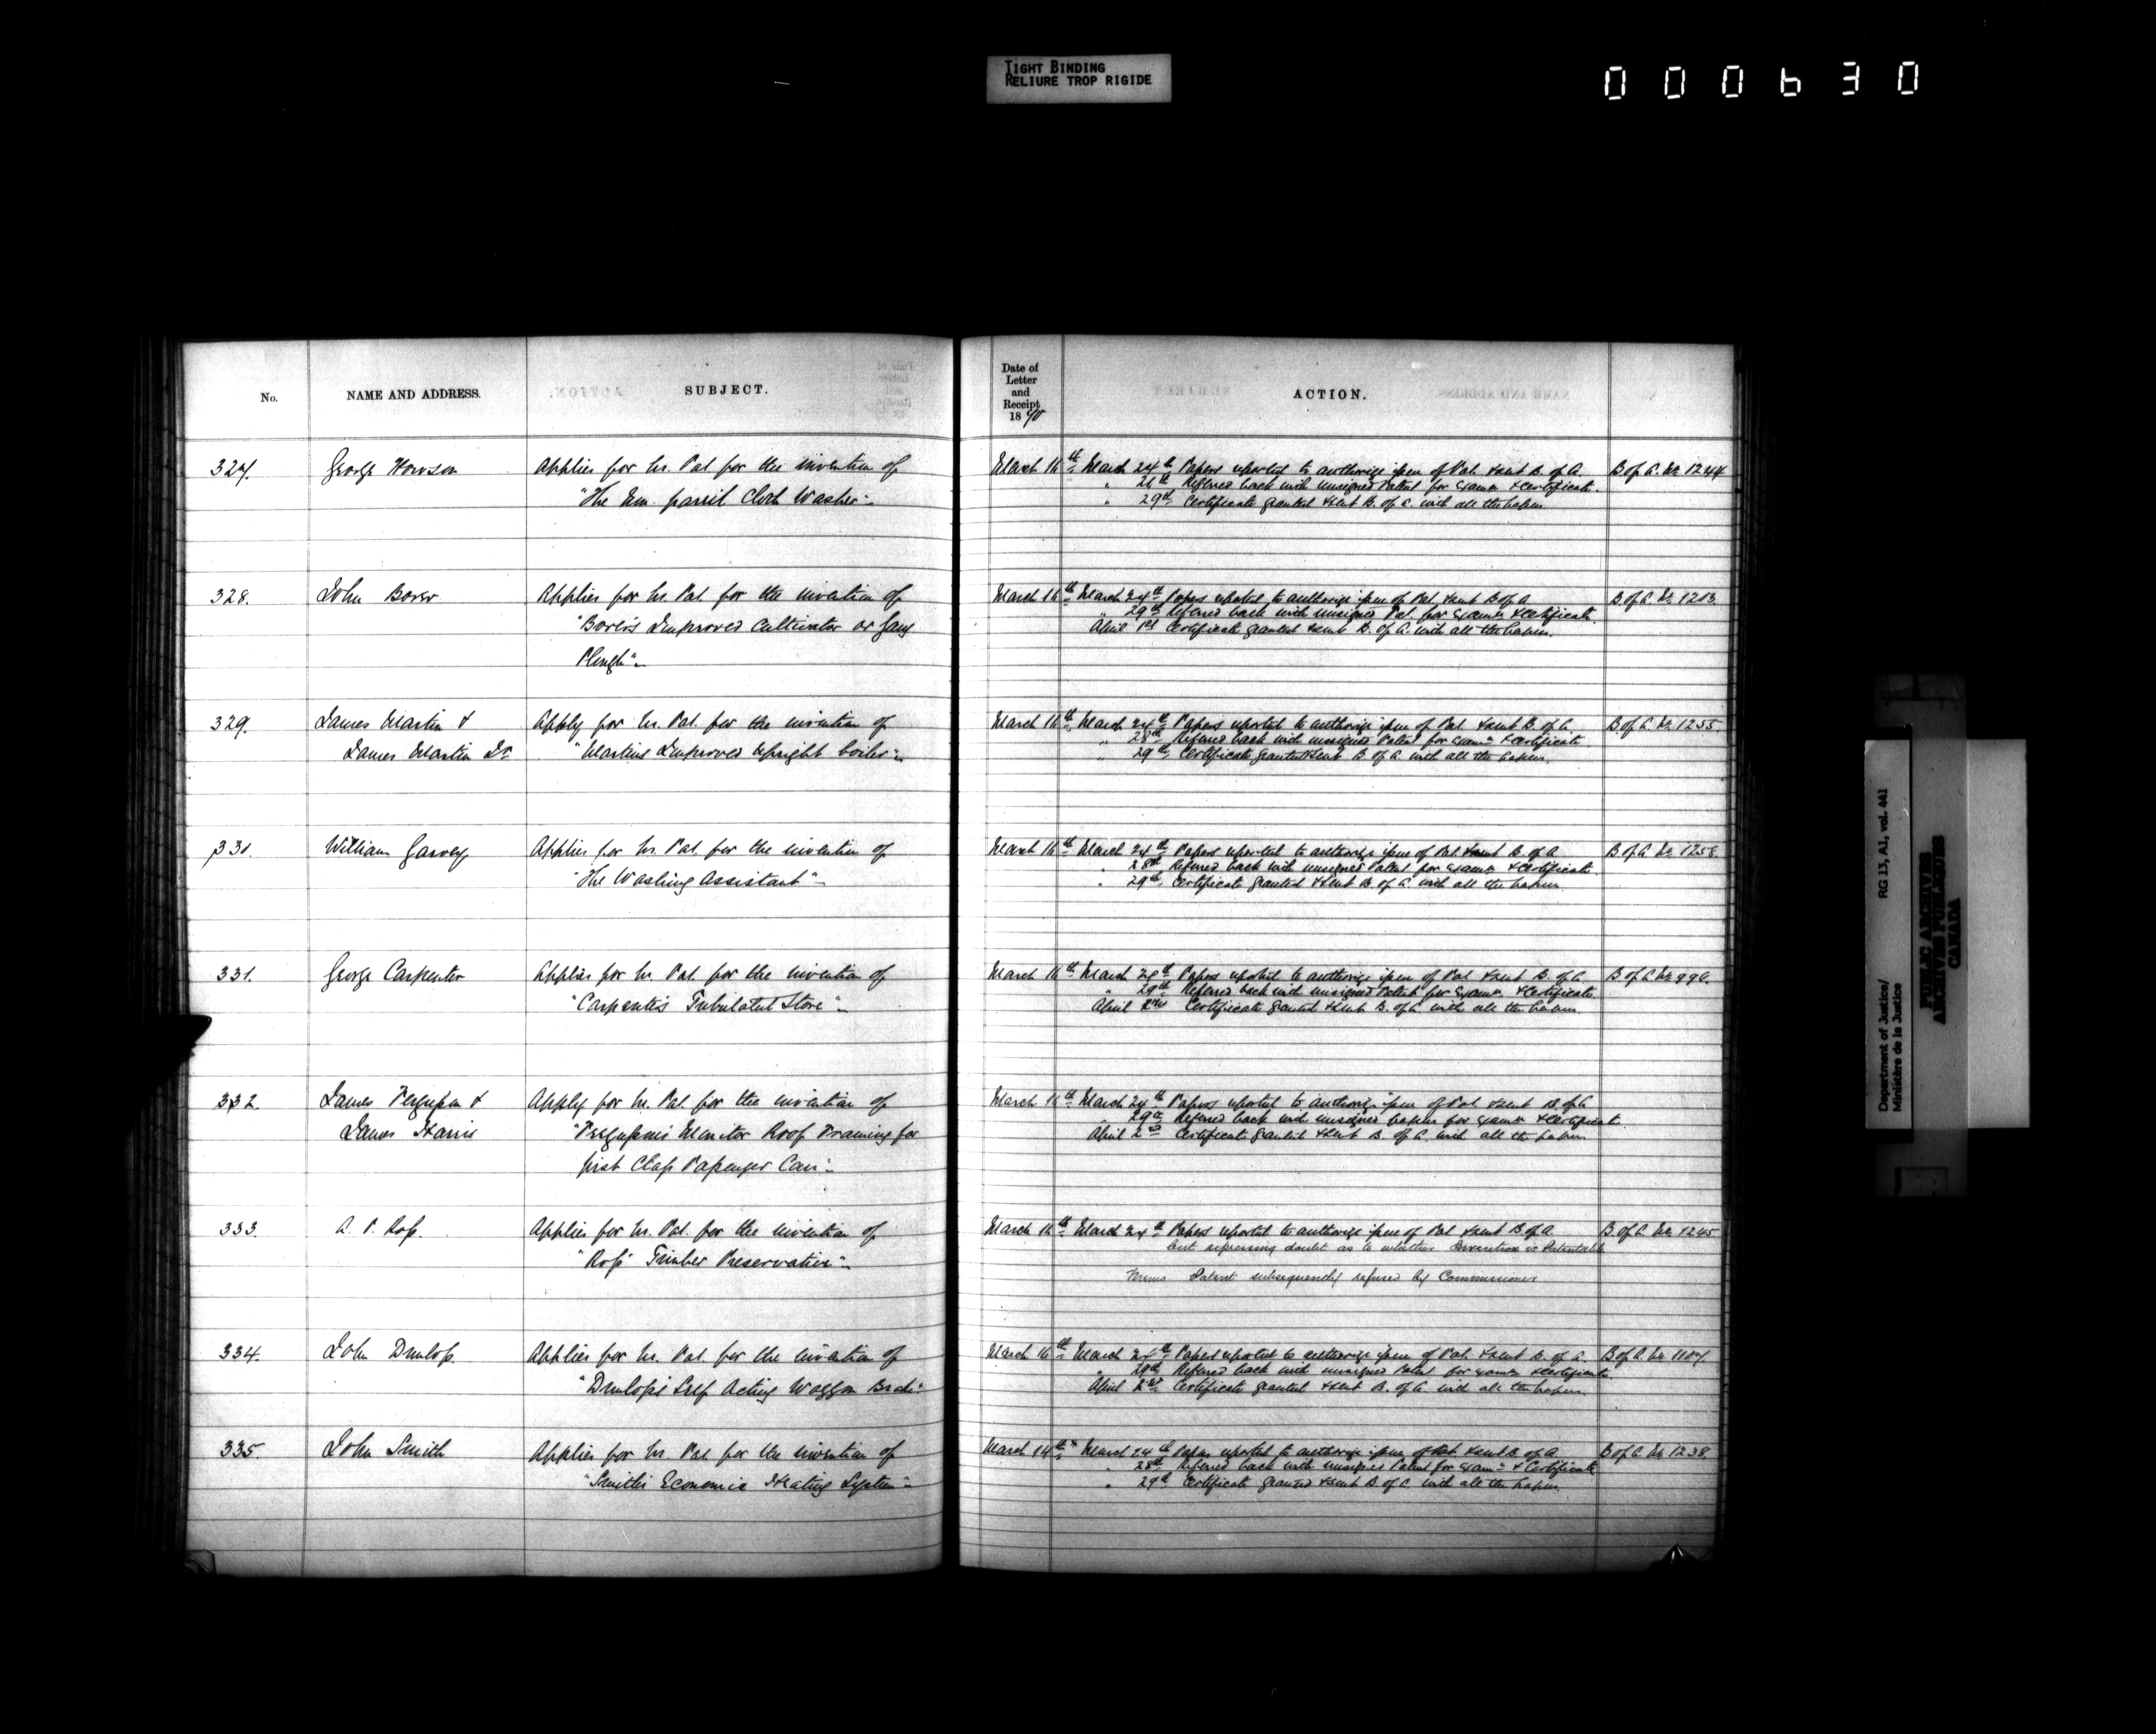 TIGHT BINDING
RELIURE TROP RIGIDE
000630
No.
NAME AND ADDRESS.
SUBJECT.
Date of
Letter
and
Receipt
1870
ACTION.
327. George Howson Applies for Lrs. Pat. for the invention of March 16th March 24th Papers reported to authorize issue of Pat. & sent B. of A. B of A. No. 1244
"The Em. parril Cloth Washer" " 26th Referred back with unsigned Patent for examn. & certificate.
" 29th Certificate granted & sent B. of A. with all the papers
328. John Borer Applies for Lrs. Pat. for the invention of March 16th March 24th Papers reported to authorize issue of Pat. & sent B of A B of A No. 1203.
"Borer's Improved Cultivator or Gang " 29th Referred back with unsigned Pat. for examn. & certificate
Plough" April 1st Certificate granted & sent B. of A. with all the papers.
329. James Martin & Apply for Lrs. Pat. for the invention of March 16th March 24th Papers reported to authorize issue of Pat. & sent B. of A. B of A No. 1255.
James Martin Jr. "Martins Improved Upright boiler" " 28th Referred back with unsigned Patent for examn. & certificate
" 29th Certificate granted & sent B. of A. with all the papers.
330. William Garvey Applies for Lrs. Pat. for the invention of March 16th March 24th Papers reported to authorize issue of Pat. & sent B. of A B of A No. 1256.
"The Washing Assistant" " 28th Referred back with unsigned Patent for examn. & certificate.
" 29th Certificate granted & sent B. of A. with all the papers
331. George Carpenter Applies for Lrs. Pat. for the invention of March 16th March 24th Papers reported to authorize issue of Pat. & sent B. of A. B of A No. 996.
"Carpenter's Tubulated Stove" " 29th Referred back with unsigned Patent for examn. & certificate.
April Certificate granted & sent B. of A. with all the papers.
332. James Ferguson & Apply for Lrs. Pat. for the invention of March 16th March 24th Papers reported to authorize issue of Pat. & sent B of A
James Harris "Ferguson's Monitor Roof Framing for " 29th Referred back with unsigned papers for examn. & certificate.
first Class Passenger Cars" April 2nd Certificate granted & sent B. of A. with all the papers
333. A. P. Ross. Applies for Lrs. Pat. for the invention of March 16th March 24th Papers reported to authorize issue of Pat. & sent B of A B of A No. 1245
"Ross' Timber Preservative" but expressing doubt as to whether Invention is Patentable
Memo Patent subsequently refused by Commissioner
334. John Dunlop. Applies for Lrs. Pat. for the invention of March 16th March 24th Papers reported to authorize issue of Pat. & sent B of A. B of A No. 1107.
"Dunlop's Self Acting Waggon Brake" " 29th Referred back with unsigned Patent for examn. & certificate
April 2nd Certificate granted & sent B. of A. with all the papers
335. John Smith Applies for Lrs. Pat. for the invention of March 14th March 24th Papers reported to authorize issue of Pat. & sent B of A B of A No. 1238.
"Smith's Economic Heating System" " 28th Referred back with unsigned Patent for examn. & Certificate
" 29th Certificate granted & sent B. of A. with all the papers.
Department of Justice/ RG 13, A1, vol. 441
Ministère de la Justice
PUBLIC ARCHIVES
ARCHIVES PUBLIQUES
CANADA